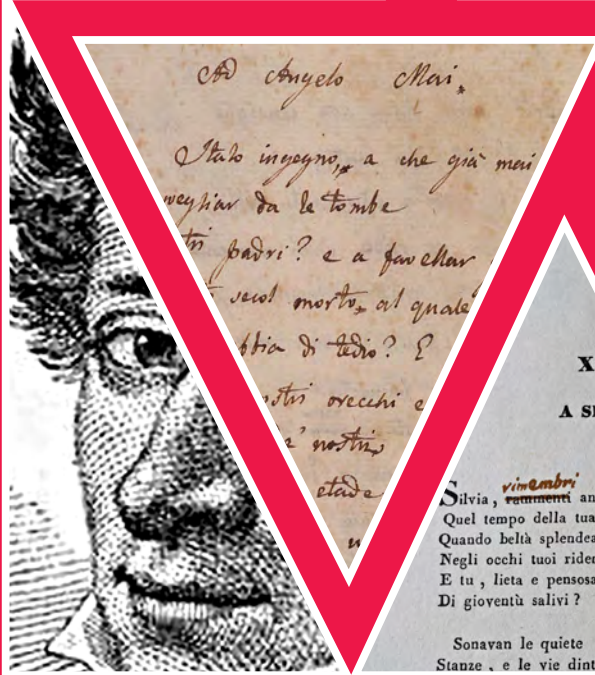 Ad Angelo Mai.
Italo ingegno, a che già mai
vegliar da le tombe
tri padri? e a favellar
secol morto, al quale
bbia di tedio? E
ostri orecchi e
e' nostri
etade
X
A SI
vimembri
Silvia, rammenti an
Quel tempo della tua
Quando beltà splendea
Negli occhi tuoi rider
E tu, lieta e pensosa
Di gioventù salivi?
Sonavan le quiete
Stanze, e le vie dint